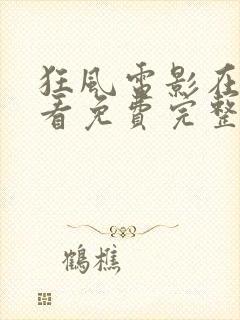 狂風雷影在
看免費完整
鶴樵